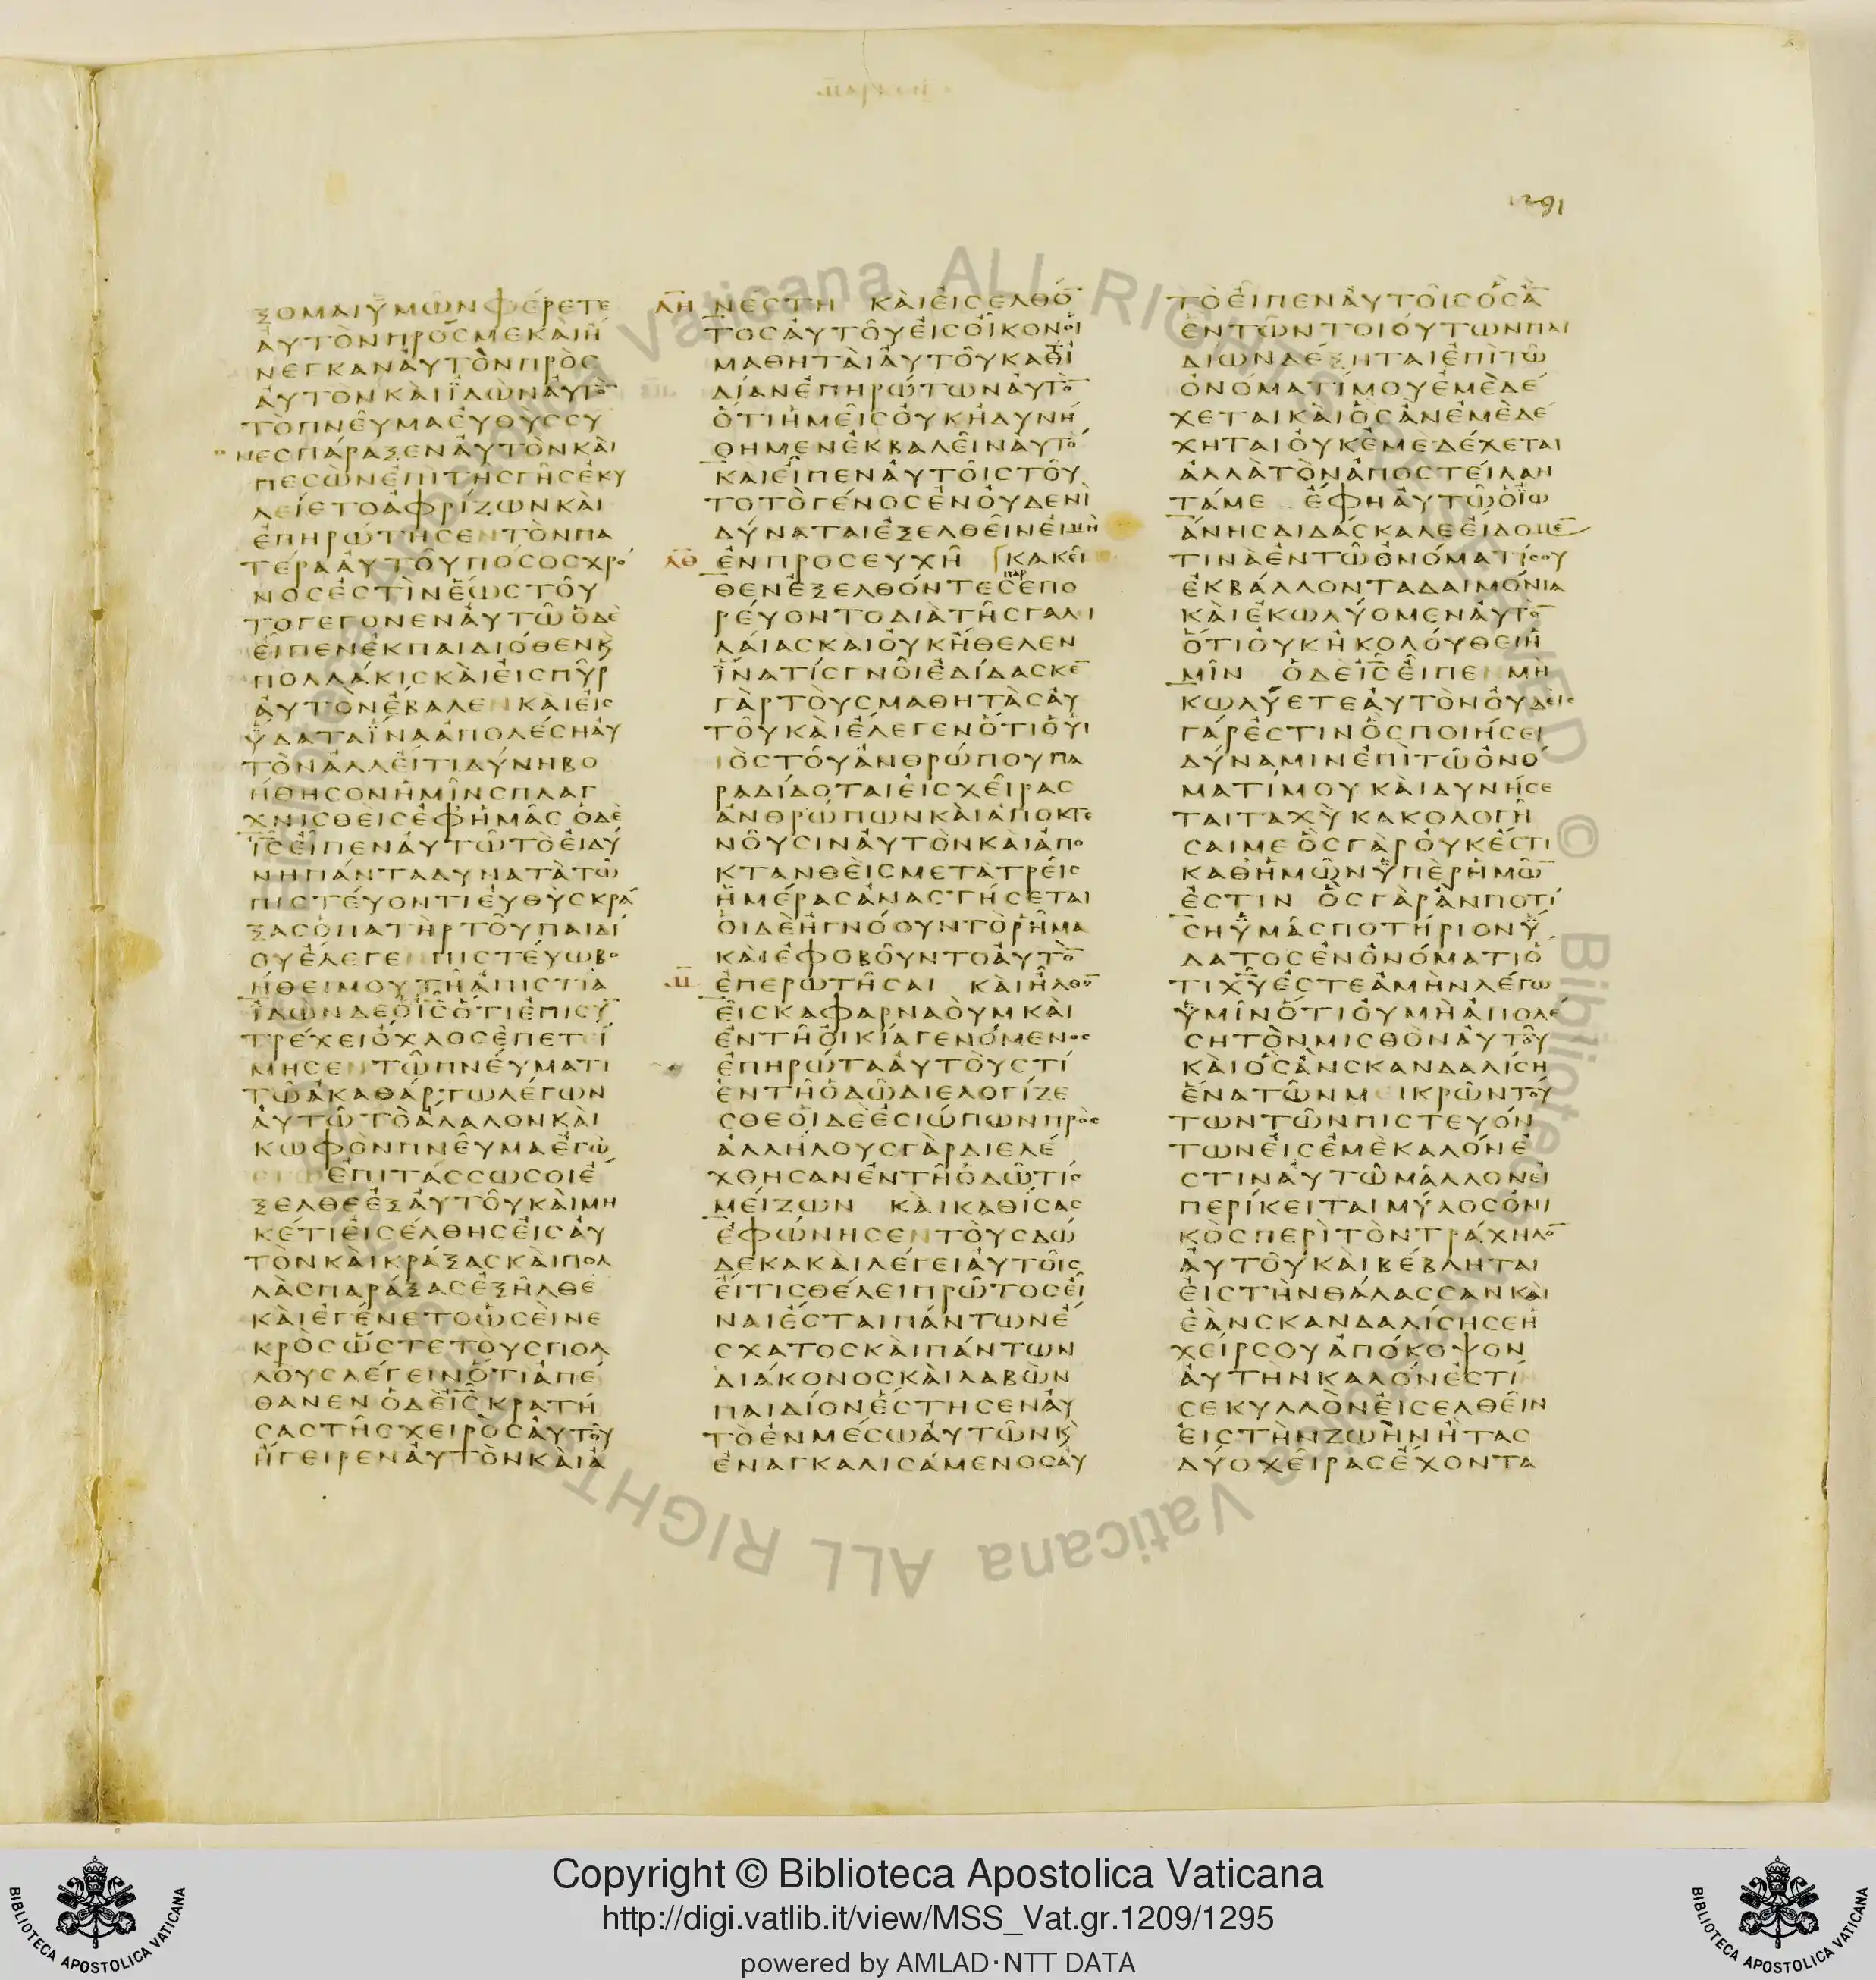 ξομαι ϋμων φερετε
αυτον προσ με και η
νεγκαν αυτον προσ
αυτον και ϊδων αυτο̅
το πνευμα ευθυσ συ
νεσπαραξεν αυτον και
πεσων επι τησ γησ εκυ
λιετο αφριζων και
επηρωτησεν τον πα
τερα αυτου ποσοσ χρο
νοσ εστιν εωσ τουτο
γεγονεν αυτω ο δε
ειπεν εκ παιδιοθεν κ
πολλακισ και εισ πυρ
αυτον εβαλεν και εισ
ϋδατα ϊνα απολεση αυ
τον αλλ ει τι δυνη βο
ηθησον ημιν σπλαγ
χνισθεισ εφ ημασ ο δε
ι̅σ̅ ειπεν αυτω το ει δυ
νη παντα δυνατα τω
πιστευοντι ευθυσ κρα
ξασ ο πατηρ του παιδι
ου ελεγεν πιστευω βο
ηθει μου τη απιστια
ϊδων δε ο ι̅σ̅ οτι επισυ̅
τρεχει οχλοσ επετει
μησεν τω πνευματι
τω ακαθαρτω λεγων
αυτω το αλαλον και
κωφον πνευμα εγω
επιτασσω σοι ε
ξελθε εξ αυτου και μη
κετι εισελθησ εισ αυ
τον και κραξασ και πολ
λα σπαραξασ εξηλθε
και εγενετο ωσει νε
κροσ ωστε τουσ πολ
λουσ λεγειν οτι απε
θανεν ο δε ι̅σ̅ κρατη
σασ τησ χειροσ αυτου
ηγειρεν αυτον και α
λη νεστη και εισελθο̅
τοσ αυτου εισ οικον οι
μαθηται αυτου κατ ϊ
διαν επηρωτων αυτο̅
οτι ημεισ ουκ ηδυνη
θημεν εκβαλειν αυτο
και ειπεν αυτοισ του
το το γενοσ εν ουδενι
δυναται εξελθειν ει μη
λθ εν προσευχη κακει
θεν εξελθοντεσ παρεπο
ρευοντο δια τησ γαλι
λαιασ και ουκ ηθελεν
ϊνα τισ γνοι εδιδασκε̅
γαρ τουσ μαθητασ αυ
του και ελεγεν οτι ο υι
ιοσ του ανθρωπου πα
ραδιδοται εισ χειρασ
ανθρωπων και αποκτε
νουσιν αυτον και απο
κτανθεισ μετα τρεισ
ημερασ αναστησεται
οι δε ηγνοουν το ρημα
και εφοβουντο αυτο̅
μ επερωτησαι και ηλθο̅
εισ καφαρναουμ και
εν τη οικια γενομενοσ
επηρωτα αυτουσ τι
εν τη οδω διελογιζε
σθε οι δε εσιωπων προσ
αλληλουσ γαρ διελε
χθησαν εν τη οδω τισ
μειζων και καθισασ
εφωνησεν τουσ δω
δεκα και λεγει αυτοισ
ει τισ θελει πρωτοσ ει
ναι εσται παντων ε
σχατοσ και παντων
διακονοσ και λαβων
παιδιον εστησεν αυ
το εν μεσω αυτων κ
εναγκαλισαμενοσ αυ
το ειπεν αυτοισ οσ α̅
εν των τοιουτων παι
διων δεξηται επι τω
ονοματι μου εμε δε
χεται και οσ αν εμε δε
χηται ουκ εμε δεχεται
αλλα τον αποστειλαν
τα με εφη αυτω ο ϊω
ανησ διδασκαλε ειδομε̅
τινα εν τω ονοματι σου
εκβαλλοντα δαιμονια
και εκωλυομεν αυτο̅
οτι ουκ ηκολουθει η
μιν ο δε ι̅σ̅ ειπεν μη
κωλυετε αυτον ουδεισ
γαρ εστιν οσ ποιησει
δυναμιν επι τω ονο
ματι μου και δυνησε
ται ταχυ κακολογη
σαι με οσ γαρ ουκ εστι
καθ ημων ϋπερ ημω̅
εστιν οσ γαρ αν ποτι
ση ϋμασ ποτηριον ϋ
δατοσ εν ονοματι ο
τι χ̅υ̅ εστε αμην λεγω
ϋμιν οτι ου μη απολε
ση τον μισθον αυτου
και οσ αν σκανδαλιση
ενα των μεικρων του
των των πιστευον
των εισ εμε καλον ε
στιν αυτω μαλλον ει
περικειται μυλοσ ονι
κοσ περι τον τραχηλο̅
αυτου και βεβληται
εισ την θαλασσαν και
εαν σκανδαλιση σε η
χειρ σου αποκοψον
αυτην καλον εστι̅
σε κυλλον εισελθειν
εισ την ζωην η τασ
δυο χειρασ εχοντα
Copyright © Biblioteca Apostolica Vaticana
http://digi.vatlib.it/view/MSS_Vat.gr.1209/1295
powered by AMLAD·NTT DATA